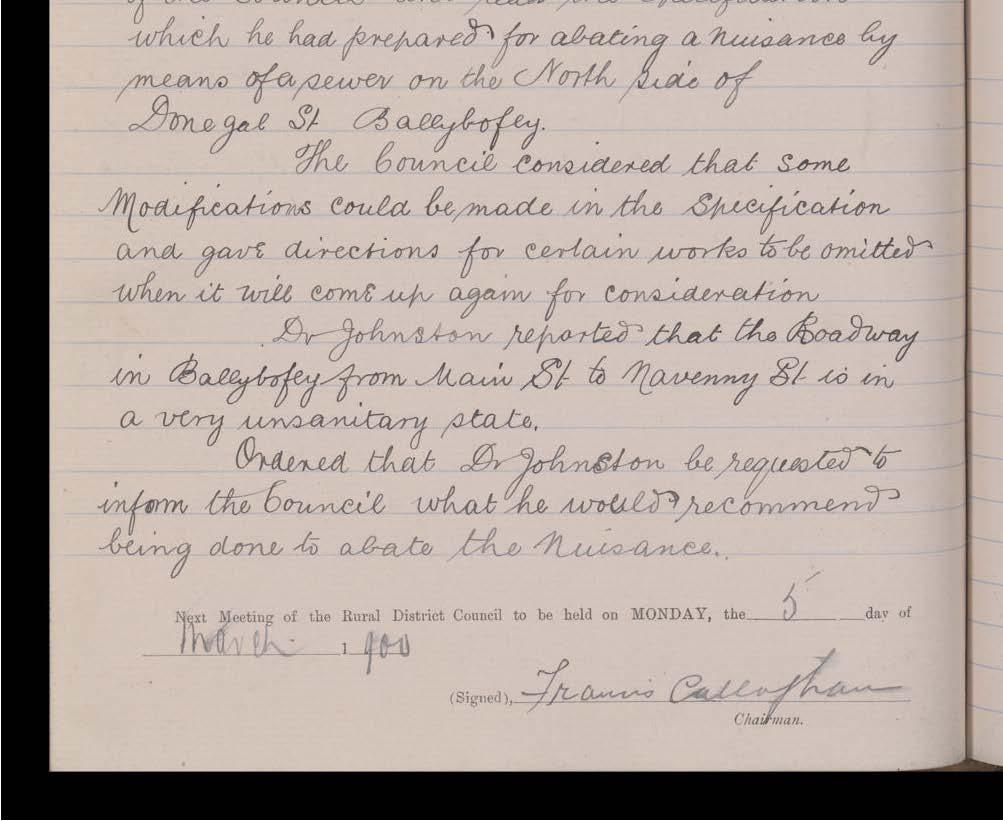 of the Council and read the specification
which he had prepared for abating a nuisance by
means of a sewer on the North side of
Donegal St Ballybofey.
The Council considered that some
Modifications could be made in the Specification
and gave directions for certain works to be omitted
when it will come up again for consideration
Dr Johnston reported that the Roadway
in Ballybofey from Main St to Navenny St is in
a very unsanitary state.
Ordered that Dr Johnston be requested to
inform the Council what he would recommend
being done to abate the Nuisance.
Next Meeting of the Rural District Council to be held on MONDAY, the 5 day of
March 1900
(Signed), Francis Callaghan
Chairman.